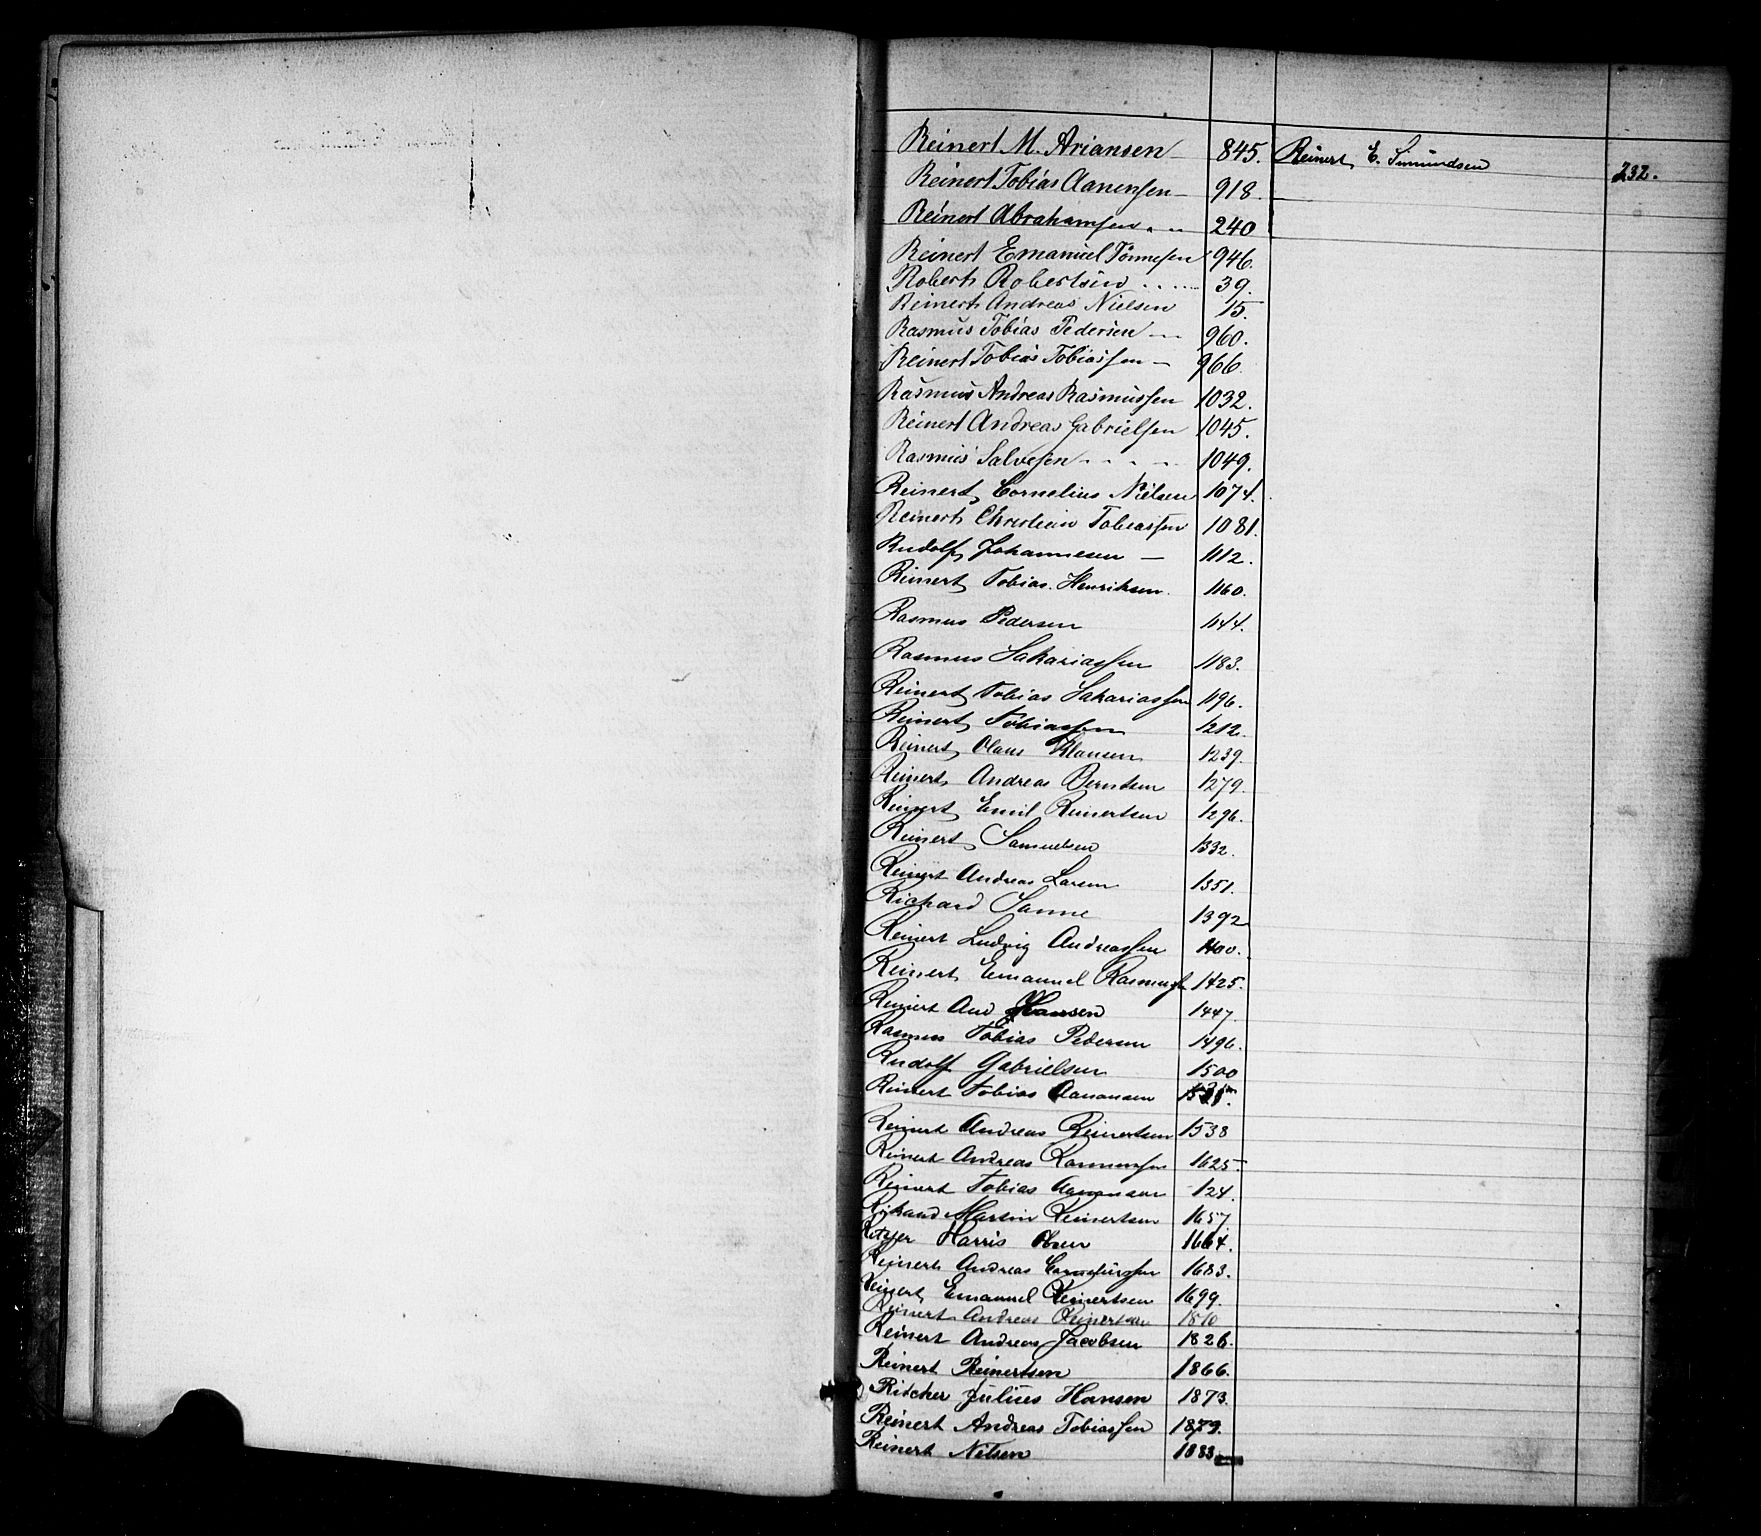 Reinert M. Ariansen 845. Reinert E. Simundsen 232.
Reinert Tobias Aanensen 918.
Reinert Abrahamsen 240
Reinert Emanuel Tönnesen 946.
Robert Robertsen 39.
Reinert Andreas Nielsen 15.
Rasmus Tobias Pedersen 960.
Reinert Tobias Tobiassen 966.
Rasmus Andreas Rasmussen 1032.
Reinert Andreas Gabrielsen 1045.
Rasmus Salvesen 1049.
Reinert Cornelius Nielsen 1074.
Reinert Christian Tobiassen 1081.
Rudolf Johannesen 1112.
Reinert Tobias Henriksen 1160.
Rasmus Pedersen 1144.
Rasmus Sakariassen 1183.
Reinert Tobias Sakariassen 1196.
Reinert Tobiassen 1212.
Reinert Olaus Klausen 1239.
Reinert Andreas Berntsen 1279.
Reinert Emil Reinertsen 1296.
Reinert Samuelsen 1332.
Reinert Andreas Larsen 1351.
Richard Sanne 1392
Reinert Ludvig Andreassen 1400.
Reinert Emanuel 1425.
Reinert And Hansen 1447.
Rasmus Tobias Pedersen 1496.
Rudolf Gabrielsen 1500
Reinert Tobias Aanonsen
Reinert Andreas Reinertsen 1538
Reinert Andreas Rasmussen 1625
Reinert Tobias Aanonsen 124.
Rikard Martin Reinertsen 1657.
Harris Olsen 1664.
Reinert Andreas Corneliussen 1683.
Reinert Emanuel Reinertsen 1699.
Reinert Andreas Reinertsen 1810
Reinert Andreas Jacobsen 1826.
Reinert Reinertsen 1866.
Ritcher Julius Hansen 1873.
Reinert Andreas Tobiassen 1879.
Reinert Nilsen 1883